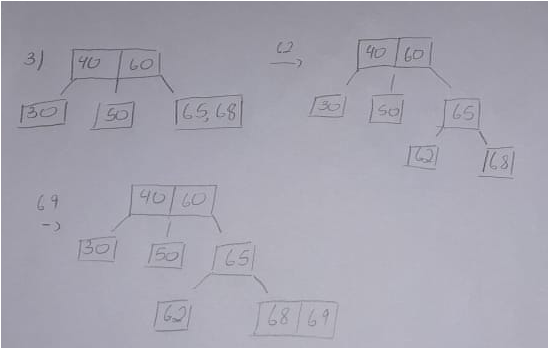 3) 40 60
30 50 65,68
62
40 60
30 50 65
62 68
69
40 60
30 50 65
62 68 69